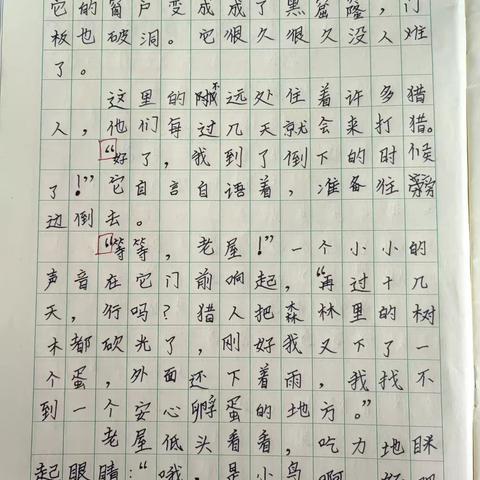 它的窗户变成成了黑窟隆，门
板也破洞。它很久很久没人难
了。
这里的不远处住着许多猎
人，他们每过几天就会来打猎。
“好了，我到了倒下的时候
了！”它自言自语着，准备往旁
边倒去。
“等等，老屋！”一个小小的
声音在它门前响起，“再过十几
天，行吗？猎人把森林里的树
木都砍光了，刚好我又下了一
个蛋，外面还下着雨，我找不
到一个安心孵蛋的地方。”
老屋低头看看，吃力地眯
起眼睛：“哦，是小鸟啊